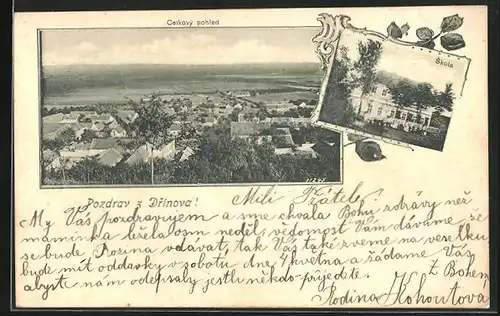 Celkový pohled
Škola
Pozdrav z Dřínova!
Milí Přátel!
My Vás pozdravujem a sme chvala Bohu zdrávy než
maminka neděl, vědomost Vám dáváme že
se bude Rozina vdávat, tak Vás také zveme na veselku
bude mít oddavky v sobotu dne 4 května a žádáme Vás
abyste nám odepsaly jestli někdo přijedete. Z Bohem
Rodina Kohoutova